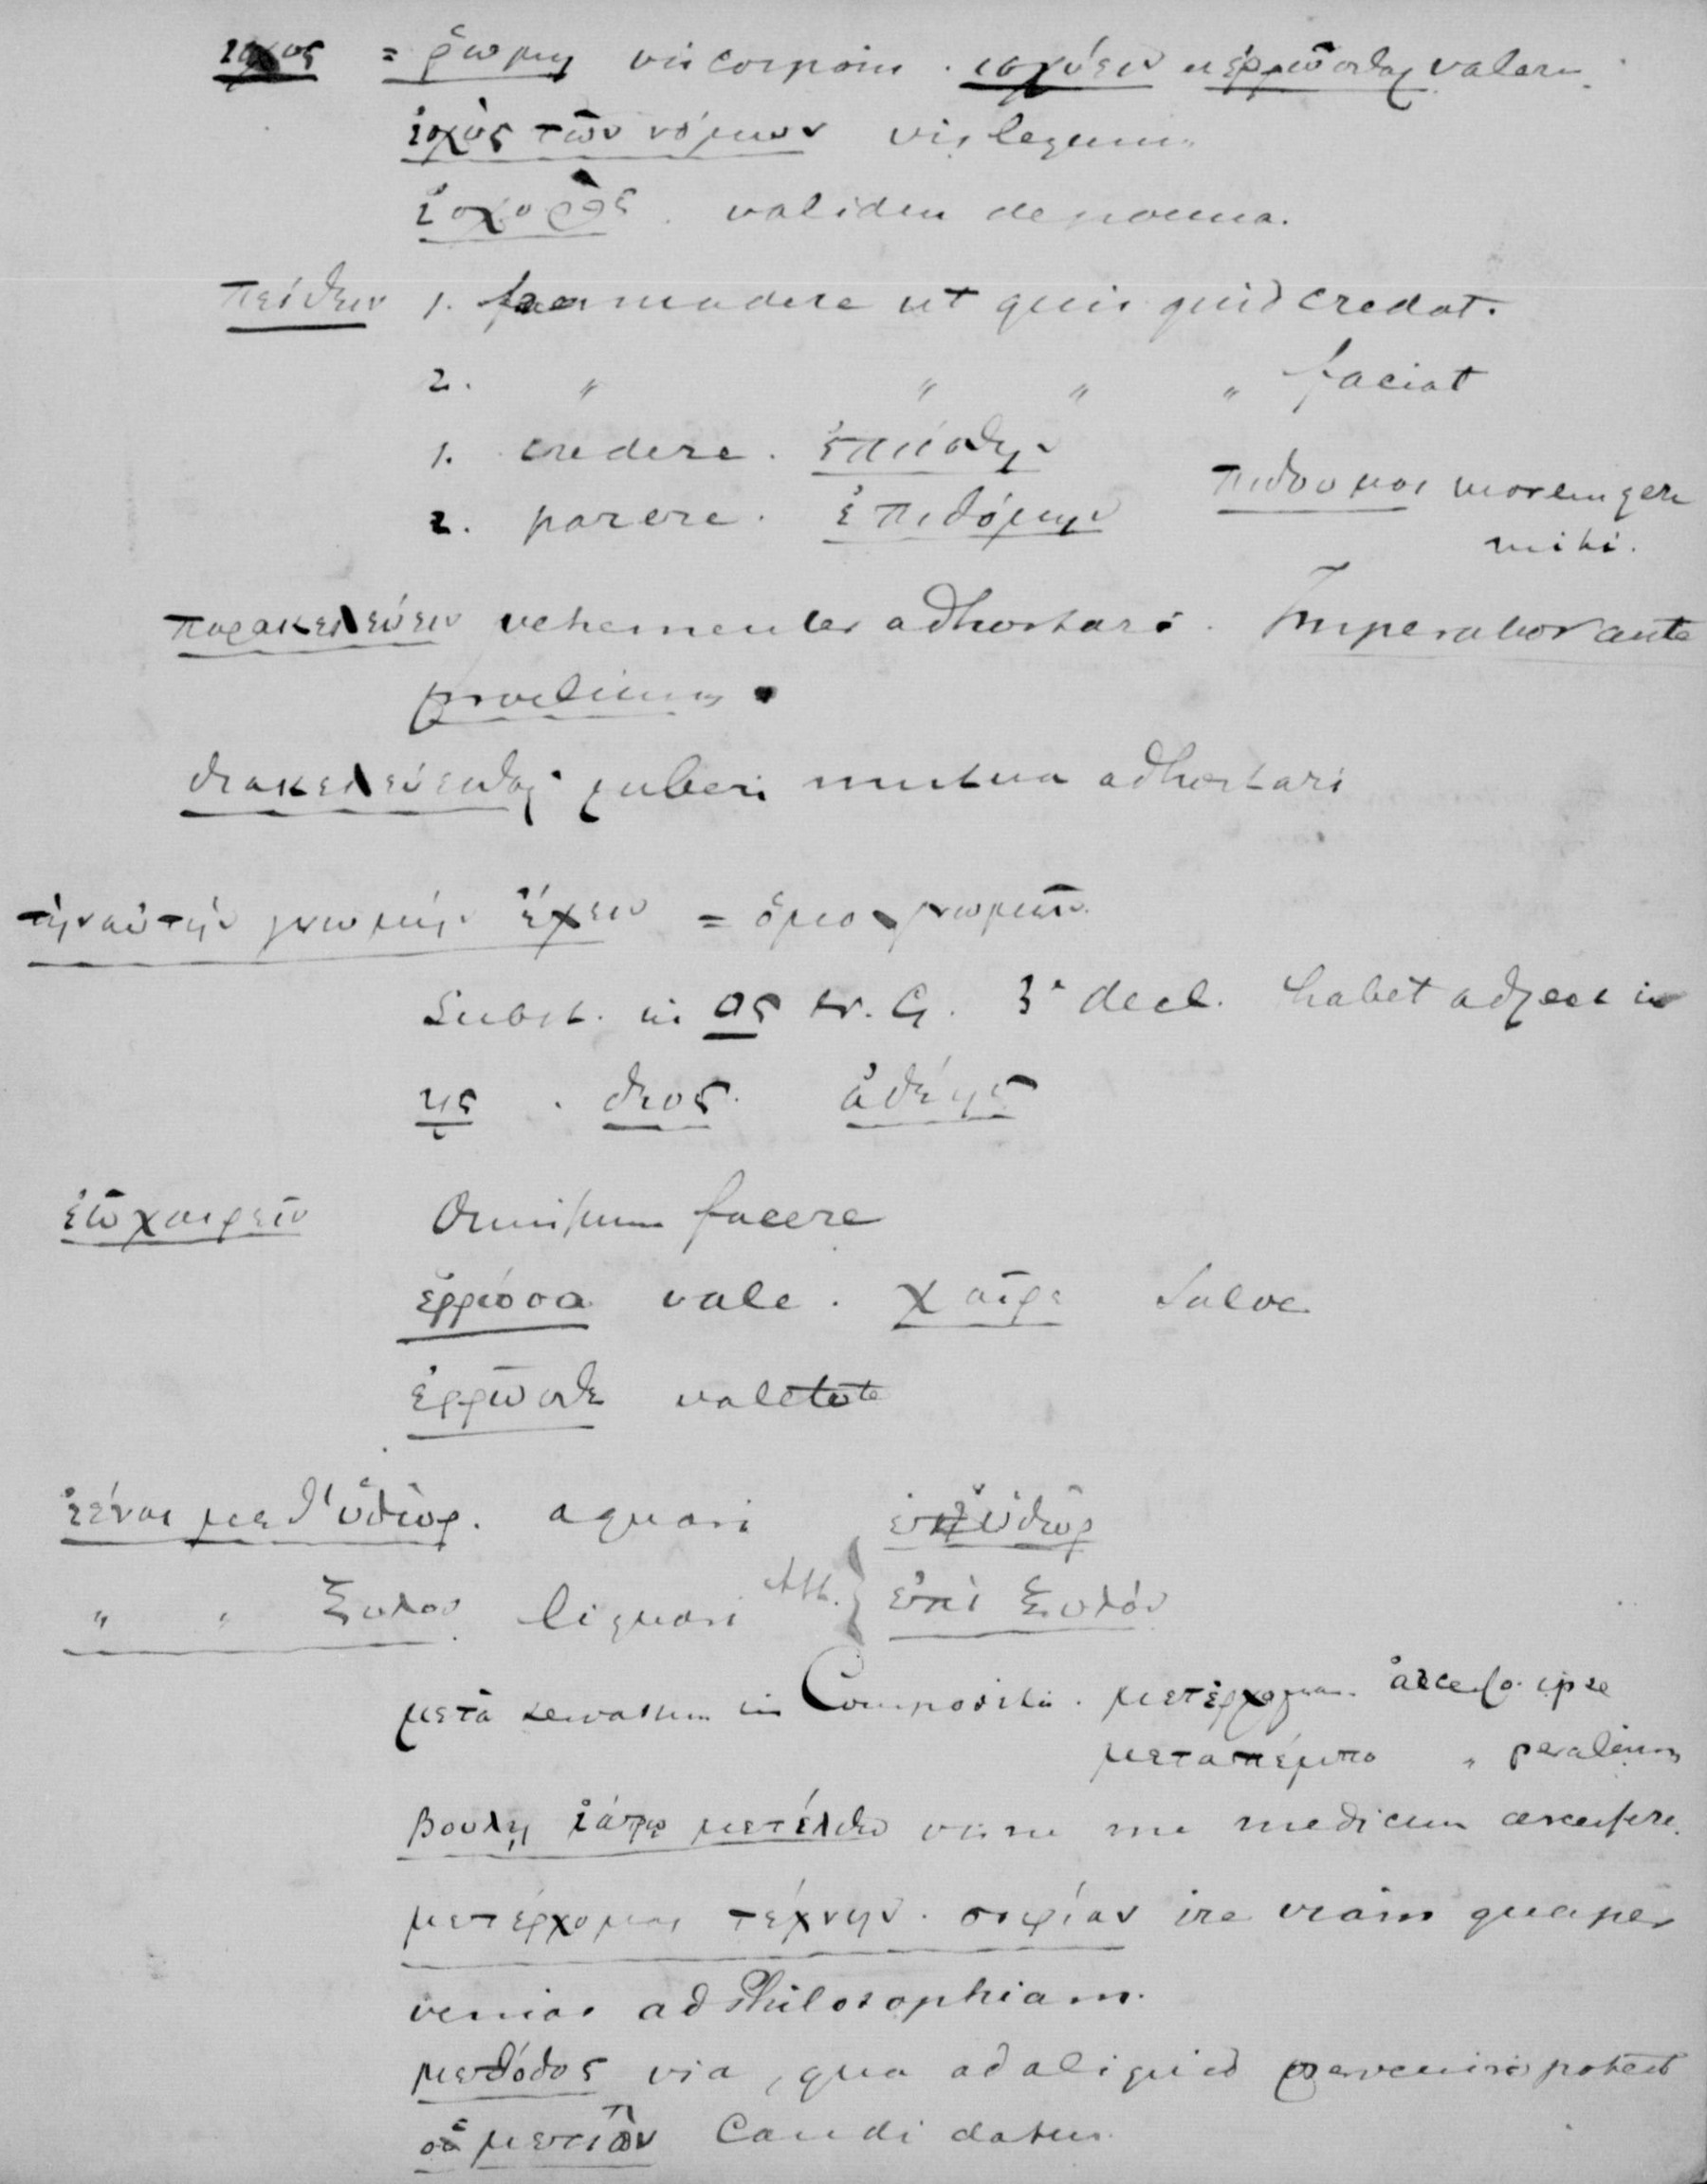 ισχυς = ῥωμη vis corporis . ισχύειν ἐρρῶσθαι valere.
ἰσχὺς τῶν νόμων vis legum.
ἰσχυρὸς . validus de poena.
πείθειν 1. persuadere ut quis quid credat.
2. " " " " faciat
1. credere . ἐπείσθην
2. parere . ἐπιθόμην πιθου μοι morem gere
mihi.
παρακελεύειν vehementer adhortari . Imperator ante
proelium.
διακελεύεσθαι juberi mutua adhortari
τὴν αὐτὴν γνωμήν ἔχειν = ὁμογνωμεῖν
Subst. in ος 3ª decl. habet adject in
ης . δεος . ἀδεής
ἐῶ χαιρεῖν Omissum facere
ἐρρωσο vale . χαῖρε salve
ἐρρῶσθε valetote
ἰέναι μεθ' ὕδωρ . aquari ἐφ' ὕδωρ
" " ξυλον lignari Att. } ἐπὶ ξυλόν
μετὰ in Compositis . μετέρχομαι arcesso ipse
μεταπέμπο " per alium
βουλῃ ἰάτρῳ μετέλθω visne me medicum arcessere.
μετέρχομαι τέχνην . σοφίαν ire viam qua per
venias ad Philosophiam.
μεθόδος via , qua ad aliquid perveniri potest
ὁ μετιὼν Candidatus.